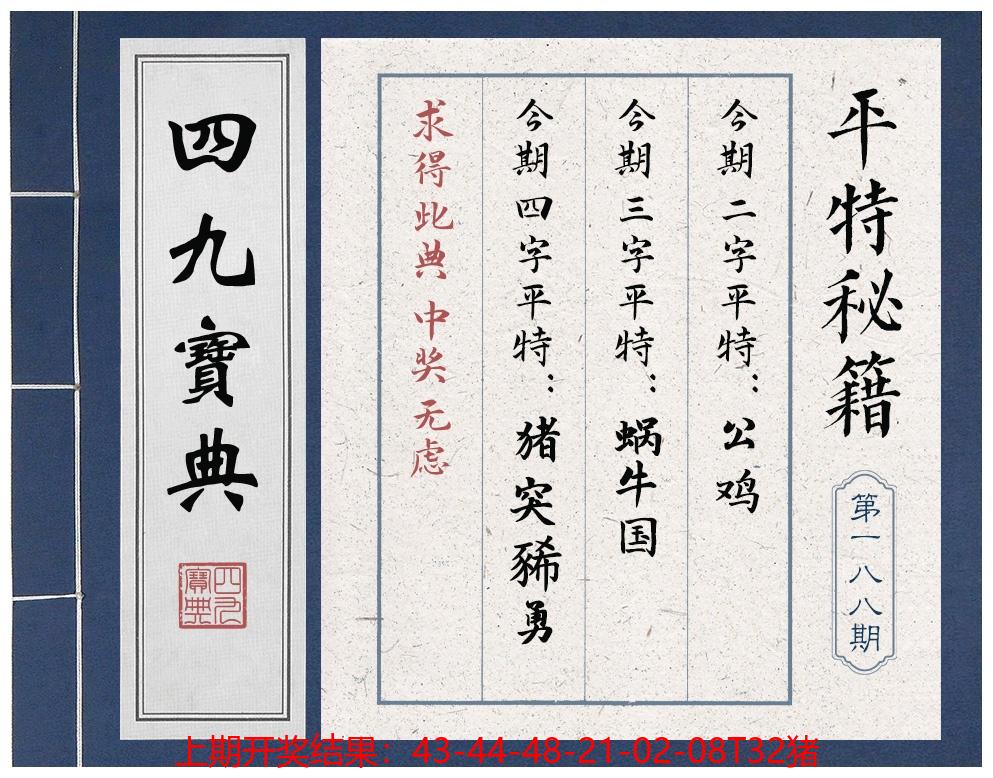 平特秘籍
第一八八期
今期二字平特：公鸡
今期三字平特：蜗牛国
今期四字平特：猪突豨勇
求得此典 中奖无虑
四九寶典
四九寶典
上期开奖结果：43-44-48-21-02-08T32猪